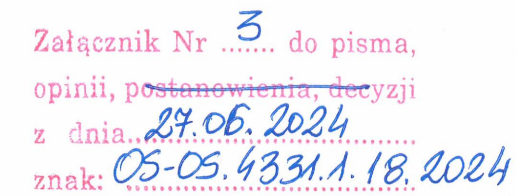 Załącznik Nr ...3... do pisma,
opinii, postanowienia, decyzji
z dnia..27.06.2024......
znak: OS-OS.4331.1.18.2024